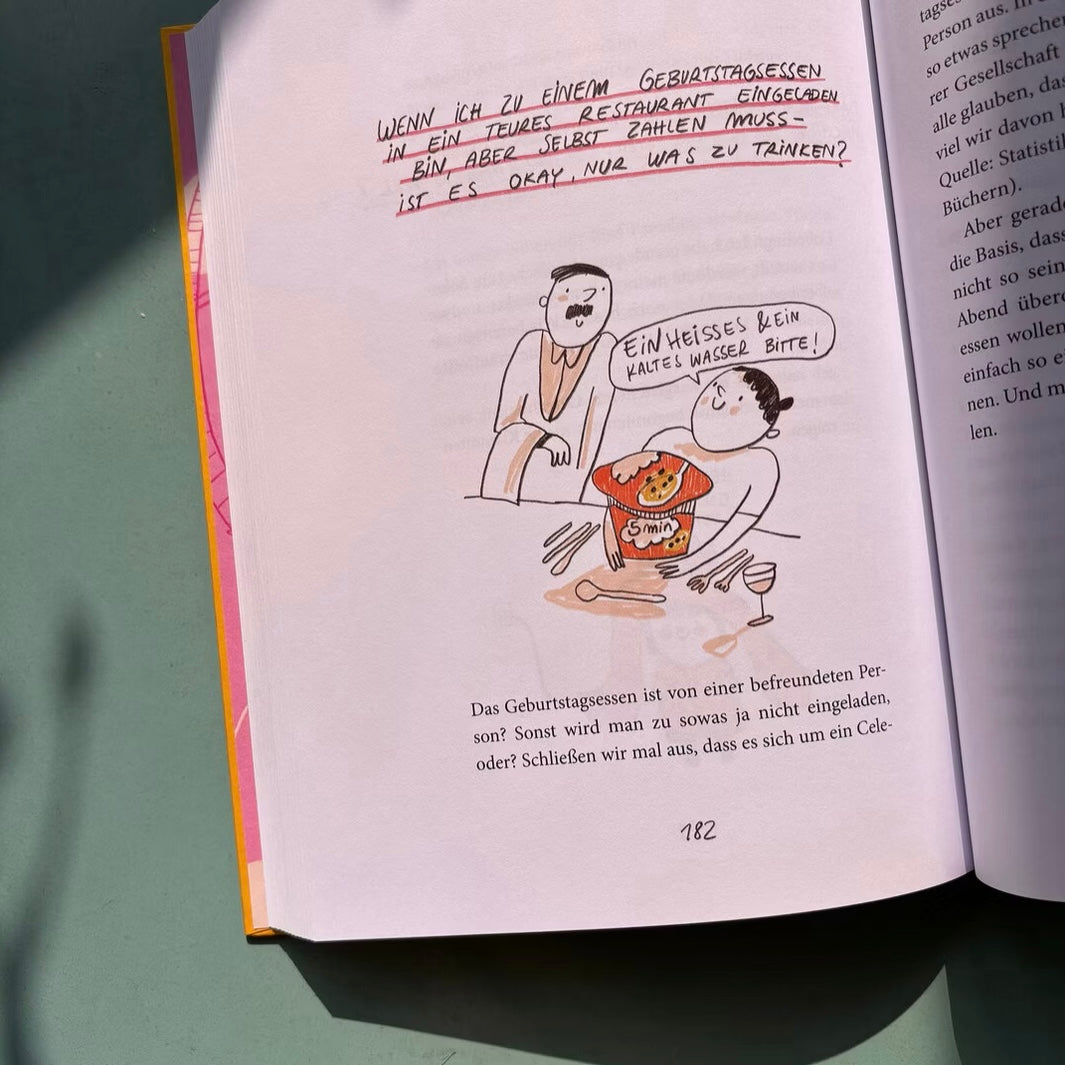 WENN ICH ZU EINEM GEBURTSTAGSESSEN
IN EIN TEURES RESTAURANT EINGELADEN
BIN, ABER SELBST ZAHLEN MUSS-
IST ES OKAY, NUR WAS ZU TRINKEN?
EIN HEISSES & EIN
KALTES WASSER BITTE!
5 min
Das Geburtstagsessen ist von einer befreundeten Per-
son? Sonst wird man zu sowas ja nicht eingeladen,
oder? Schließen wir mal aus, dass es sich um ein Cele-
182
Person aus.
so etwas
rer Gesellschaft
alle glauben,
viel wir davon
Quelle:
Büchern).
Aber
die Basis,
nicht so sein
Abend
essen
einfach so
nen. Und
len.